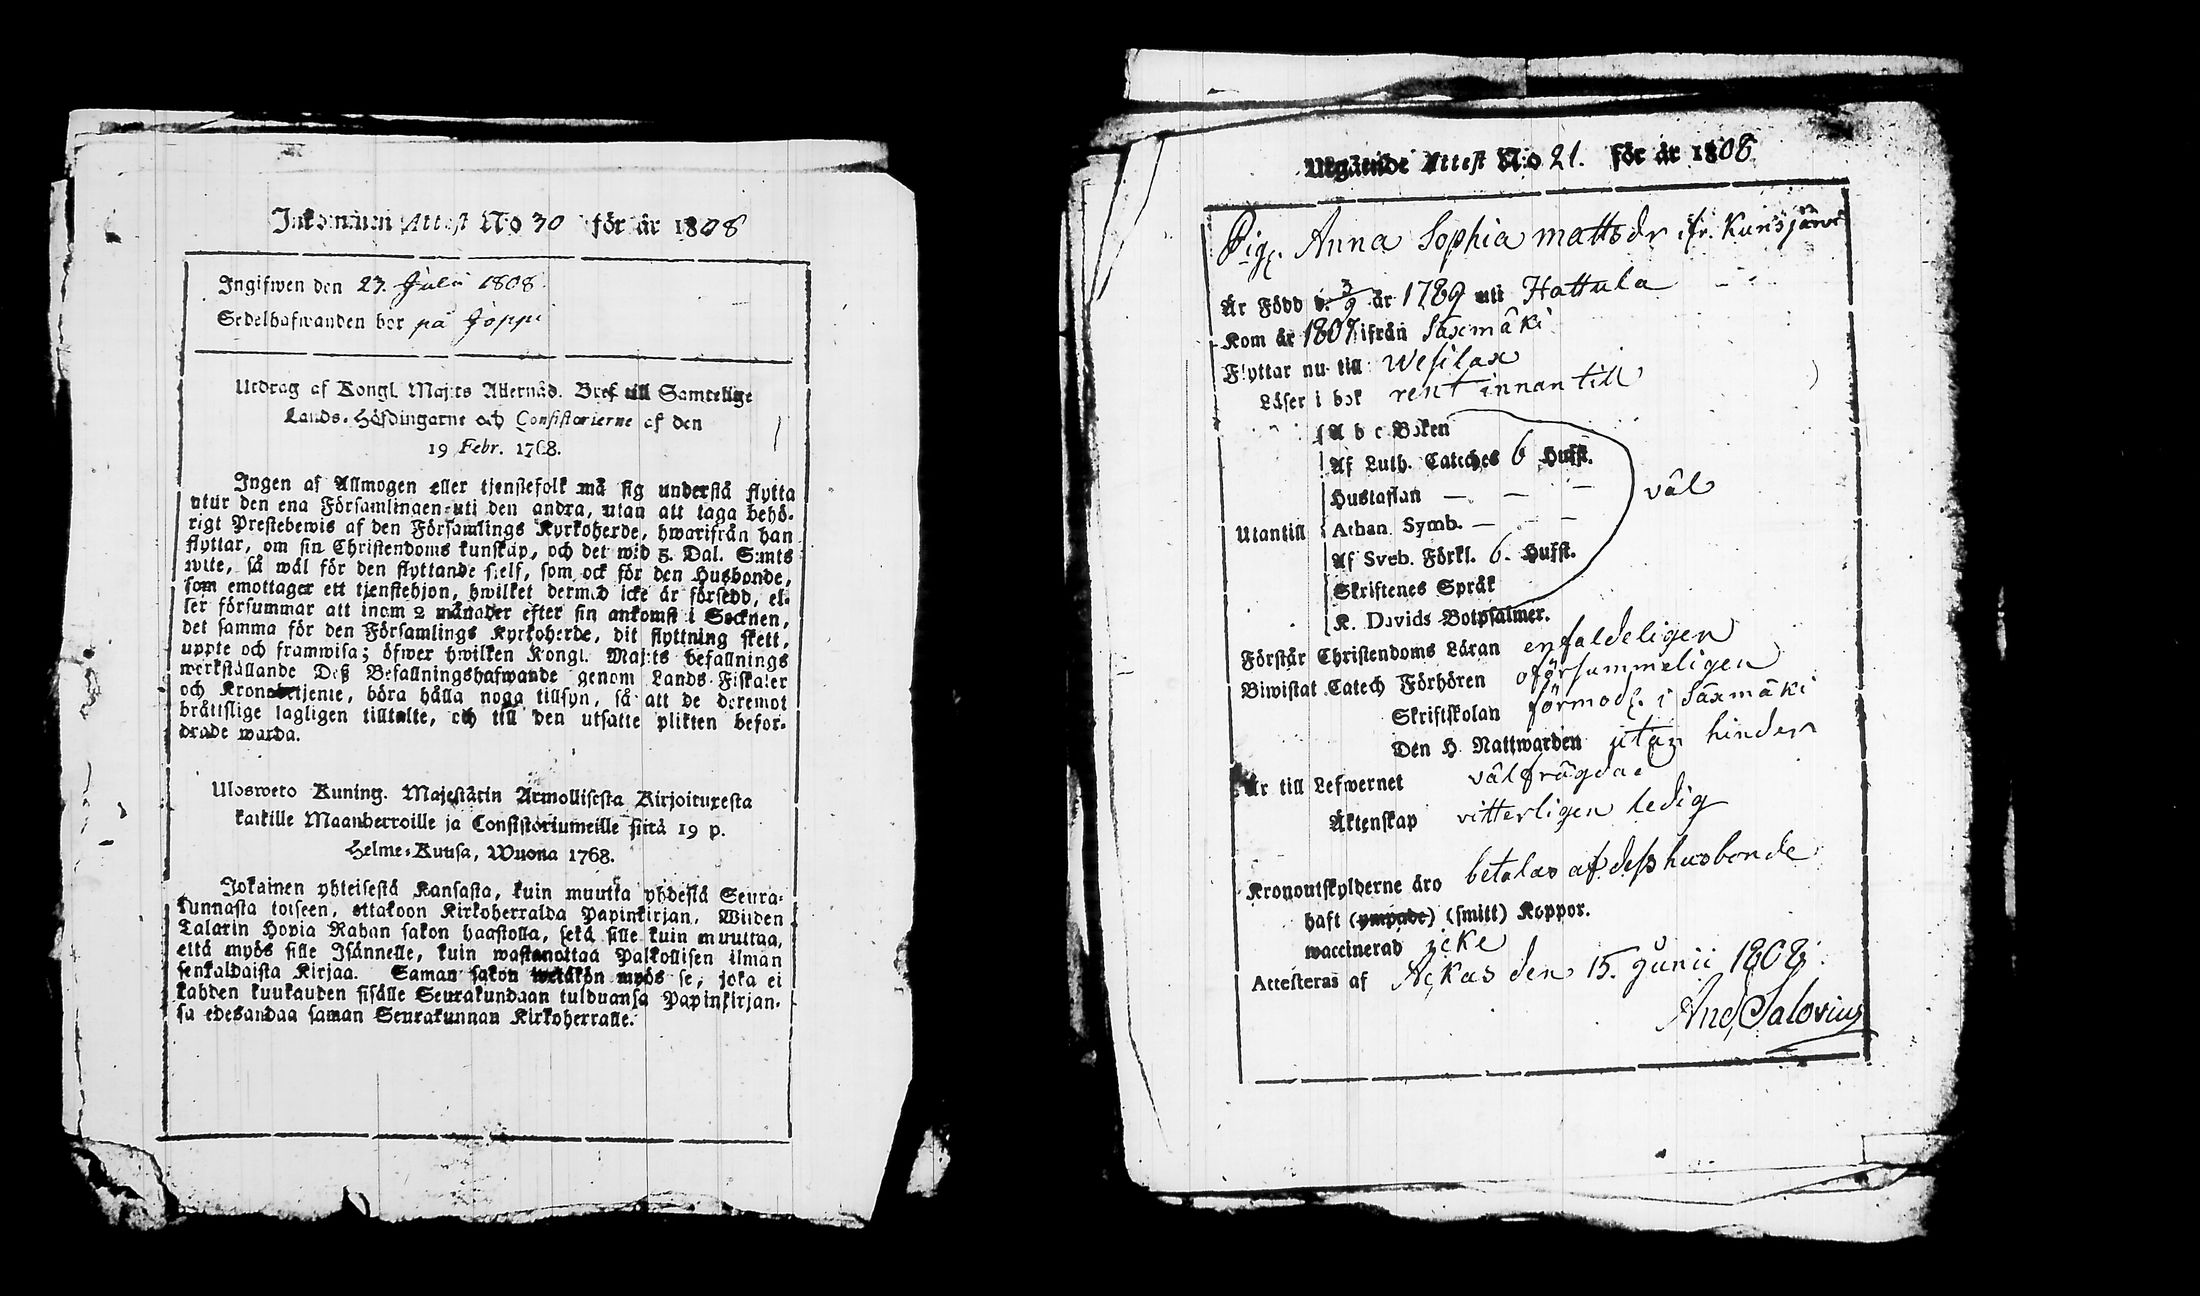 Inkommen Attest No 30 för år 1808
Ingifwen den 23. Julii 1808.
Sedelhafwanden bor på Joppi
Utdrag af Kongl. Maj:ts Allernåd. Bref till Samtelige
Lands-Höfdingarne och Consistorierne af den
19 Febr. 1768.
Ingen af Allmogen eller tjenstefolk må sig understå flytta
utur den ena Församlingen uti den andra, utan att taga behö-
rigt Prestebewis af den Församlings Kyrkoherde, hwarifrån han
flyttar, om sin Christendoms kunskap, och det wid 5. Dal. S:mts
wite, så wäl för den flyttande sjelf, som ock för den Husbonde,
som emottager ett tjenstehjon, hwilket dermed icke är försedd, el-
ler försummar att inom 2 månader efter sin ankomst i Socknen,
det samma för den Församlings Kyrkoherde, dit flyttning skett,
uppte och framwisa; öfwer hwilken Kongl. Maj:ts befallnings
werkställande Deß Befallningshafwande genom Lands-Fiskaler
och Kronobetjente, böra hålla noga tillsyn, så att de deremot
bråttslige lagligen tilltalte, och till den utsatte plikten befor-
drade warda.
Ulosweto Kuning. Majestätin Armollisesta Kirjoituxesta
kaikille Maanherroille ja Consistoriumeille siitä 19 p.
Helme-Kuusa, Wuona 1768.
Jokainen yhteisestä Kansasta, kuin muutta yhdestä Seura-
kunnasta toiseen, ottakoon Kirkoherralda Papinkirjan, Wiiden
Talarin Hopia Rahan sakon haastolla, sekä sille kuin muuttaa,
että myös sille Isännelle, kuin wastanottaa Palkollisen ilman
senkaldaista Kirjaa. Saman sakon wetäkön myös se, joka ei
kahden kuukauden sisälle Seurakundaan tulduansa Papinkirjan-
sa edesandaa saman Seurakunnan Kirkoherralle.
Utgående Attest No 21. för år 1808
Pig. Anna Sophia mattsdr ifr. Kurisjärvi
Är Född d. 3/9 år 1789 uti Hattula
Kom år 1807 ifrån Säxmäki
Flyttar nu till Wesilax
Läser i bok rent innantill
A b c Boken
Af Luth. Cateches 6 Hufst.
Hustaflan — — —
Utantill Athan. Symb. — — väl
Af Sveb. Förkl. 6. Hufst.
Skriftenes Språk
K. Davids Botpsalmer.
Förstår Christendoms Läran enfaldeligen
Biwistat Catech Förhören oförsummeligen
Skriftskolan förmodl. i Säxmäki
Den H. Nattwarden utan hinder
Är till Lefwernet välfrägdad
Äktenskap vitterligen ledig
Kronoutskylderne äro betalas af deß husbonde
haft (ympade) (smitt) Koppor.
waccinerad icke
Attesteras af Ackas den 15. Junii 1808.
And. Salovius